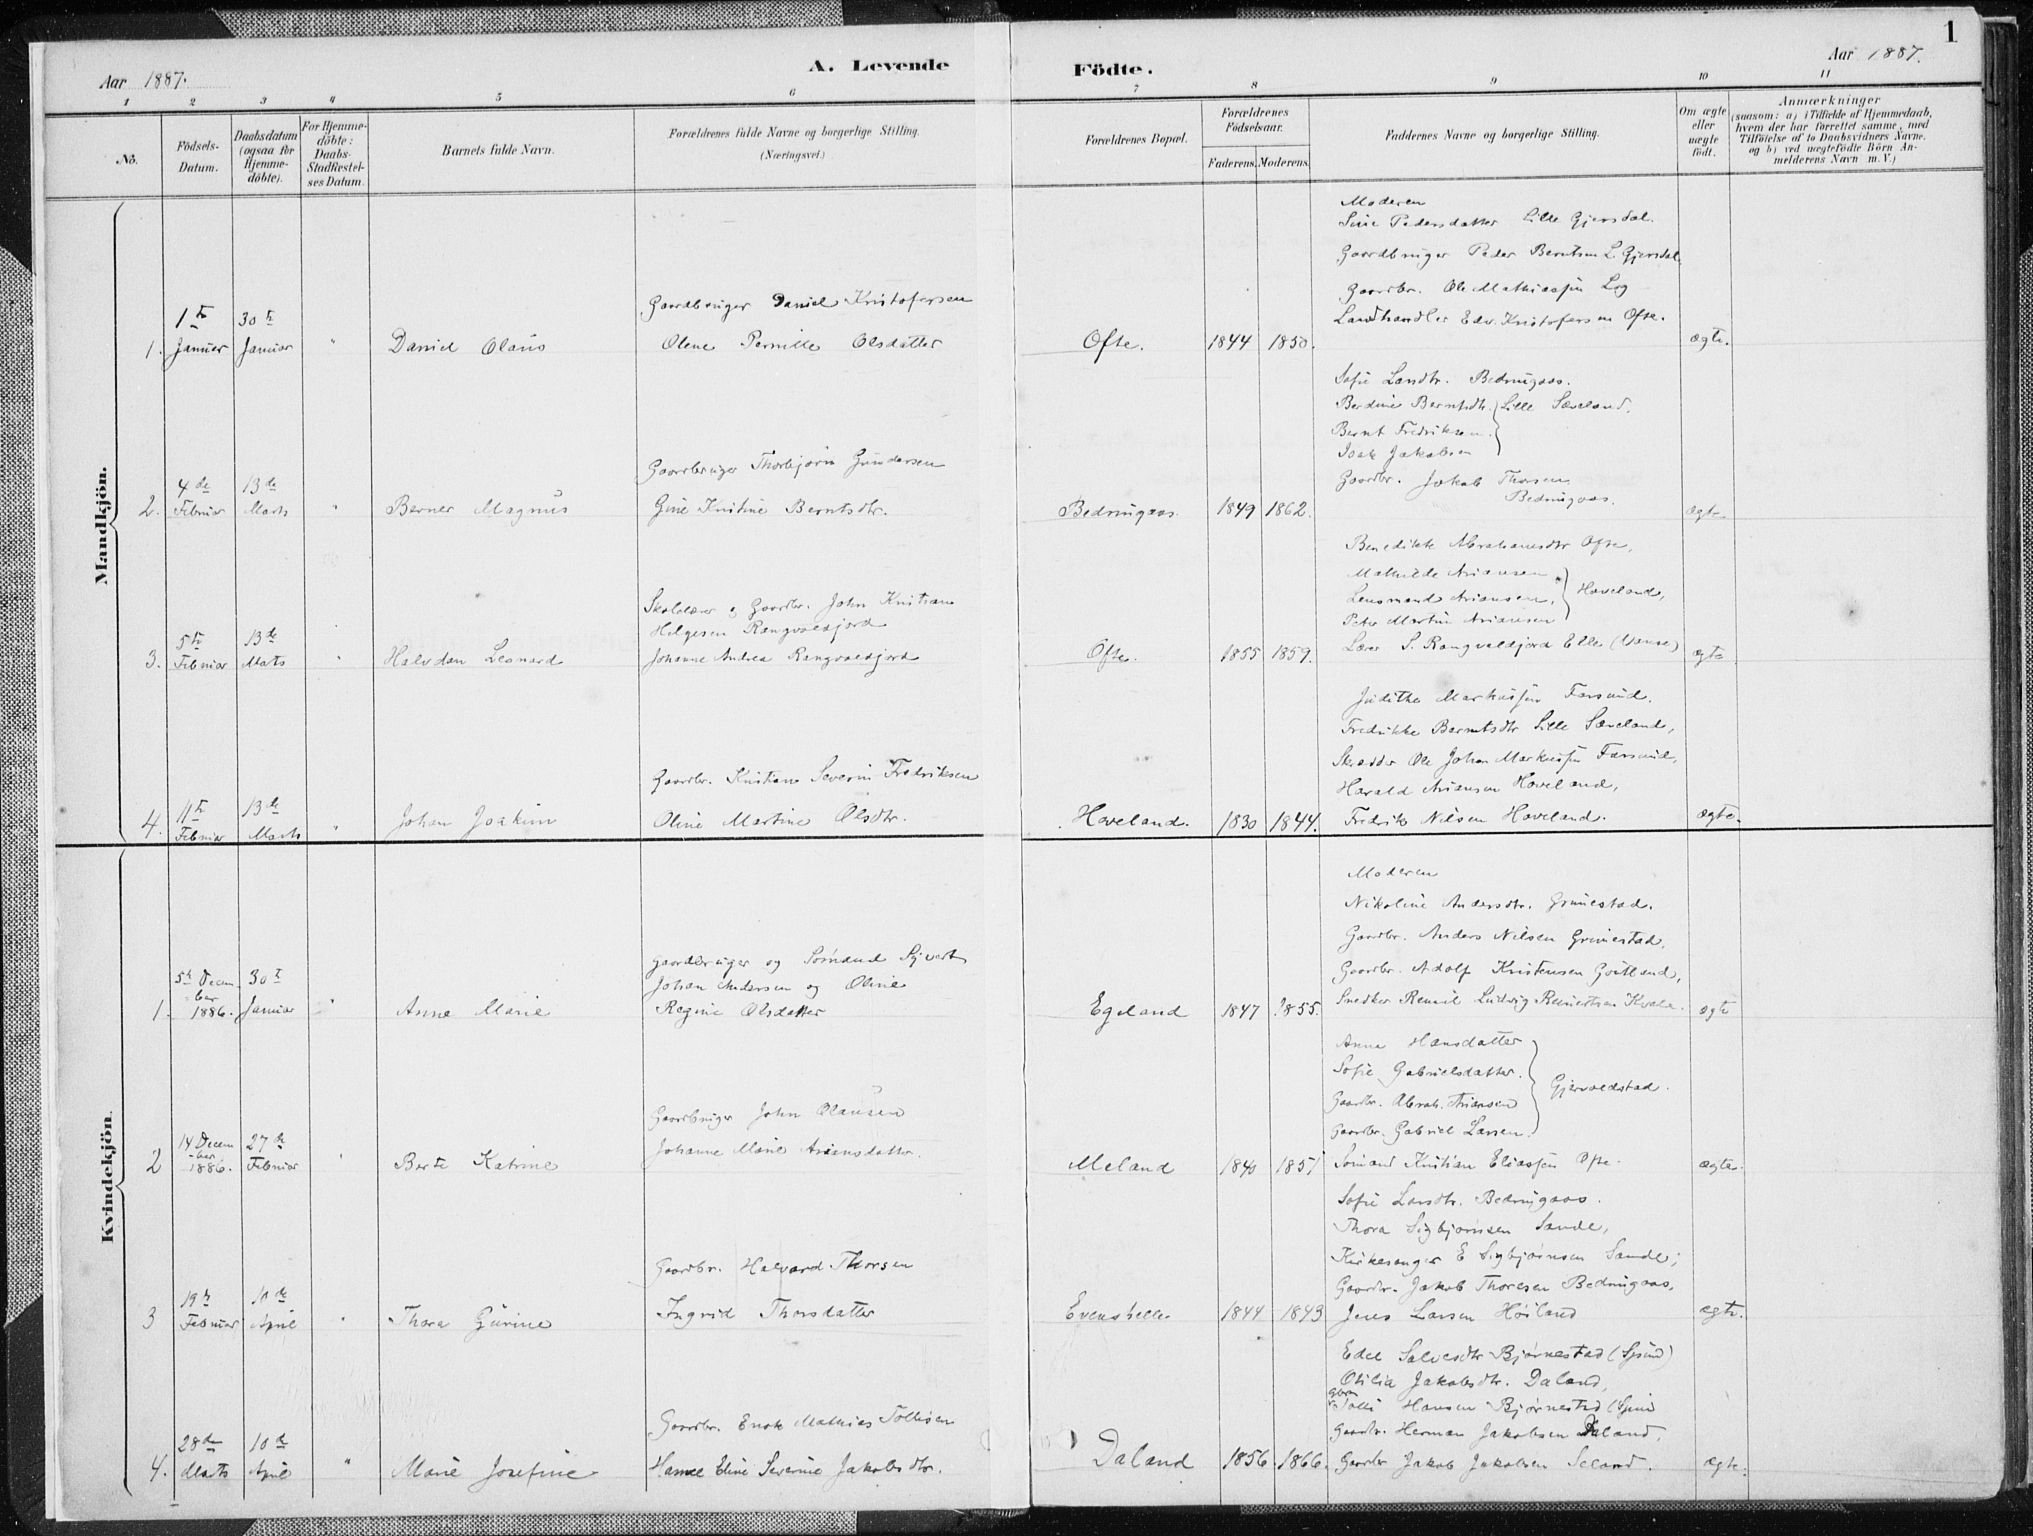 1
Aar 1887.
A. Levende Födte.
Aar 1887.
1 2 3 4 5 6 7 8 9 10 11
No.
Födsels-Datum.
Daabsdatum (ogsaa for Hjemme-döbte).
For Hjemme-döbte: Daabs-Stadfæstel-ses Datum.
Barnets fulde Navn.
Forældrenes fulde Navne og borgerlige Stilling.
(Næringsvei.)
Forældrenes Bopæl.
Forældrenes Födselsaar.
Faderens. Moderens.
Faddernes Navne og borgerlige Stilling.
Om ægte eller uægte födt.
Anmærkninger
(saasom: a) i Tilfælde af Hjemmedaab,
hvem der har forrettet samme, med
Tilföielse af to Daabsvidners Navne.
og b) ved uægtefödte Börn An-
melderens Navn m. V.)
Mandkjön.
1. 1te Januar
30te Januar
"
Daniel Olaus
Gaardbruger Daniel Kristofersen
Olene Pernille Olsdatter
Ofte.
1844 1850.
Moderen
Sine Pedersdatter Lille Gjersdal.
Gaardbruger Peder Berntsen L Gjersdal
Gaardbr. Ole Mathiassen Log
Landhandler Edv. Kristofersen Ofte.
ægte.
2. 4de Februar
13de Marts
"
Berner Magnus
Gaardbruger Thorbjørn Gundersen
Gine Kristine Berntsdtr.
Bedringaas.
1849 1862.
Sofie Larsdtr. Bedringaas.
Berdine Berntsdtr. } Lille Sæveland.
Bernt Fredriksen.
Isak Jakobsen
Gaardbr. Jakob Thorsen
Bedringaas.
ægte
3. 5te Februar
13de Mats
"
Halvdan Leonard
Skolelærer og Gaardbr. John Kristian
Helgesen Rangvaldsjord
Johanne Andrea Rangvaldsjord
Ofte.
1855 1859.
Benedikte Abrahamsdtr Ofte,
Mathilde Ariansen } Haveland,
Lensmand Ariansen,
Peter Martin Ariansen
Lærer S. Rangvaldsjord Elle (Vanse)
ægte
4. 11te Februar
13de Marts
"
Johan Joakim
Gaardbr. Kristian Severin Fredriksen
Oline Martine Olsdtr.
Haveland.
1830 1844.
Judithe Markussen Farsund.
Fredrikke Berntsdtr Lille Sæveland,
Skrædder Ole Johan Markussen Farsund,
Harald Ariansen Haveland,
Fredrik Nilsen Haveland.
ægte.
Kvindekjön.
1. 5te Decem=ber 1886.
30te Januar
"
Anne Marie
Gaardbruger og Sømand Syvert
Johan Andersen og Oline
Regine Olsdatter
Egeland
1847 1855.
Moderen
Nikoline Andersdtr. Grimestad.
Gaardbr. Anders Nilsen Grimestad,
Gaardbr. Adolf Kristensen Gøitland,
Snedker Ludvig Reinertsen Kvale.
ægte
2 14 Decem-ber 1886.
27de Februar
"
Berte Katrine
Gaardbruger John Olausen
Johanne Marie Ariansdatter.
Meland
1840 1851
Anna Hansdatter } Gjervoldstad.
Sofie Gabrielsdatter.
Gaardbr. Abrah. Ariansen
Gaardbr. Gabriel Larsen.
Sømand Kristian Eliassen Ofte.
ægte.
3 19de Februar
10de April
"
Thora Gurine
Gaardbr. Halvard Thorsen
Ingrid Thorsdatter
Evenshelle.
1844 1843
Sofie Larsdtr. Bedringaas.
Thora Sigbjørnsen Sande,
Kirkesanger E Sigbjørnsen Sande,
Gaardbr. Jakob Thoresen Bedringaas,
Jens Larsen Høiland
ægte.
4. 28de Marts
10de April
"
Marie Josefine
Gaardbr. Enok Mathias Tollisen
Hanne Eline Severine Jakobsdtr.
Daland
1856 1866.
Edel Salvesdtr Bjørnestad (Spind)
Otilia Jakobsdtr. Daland,
Tolli Hansen Bjørnestad (Spind
Gaardbr. Herman Jakobsen Daland,
Gaardbr Jakob Jakobsen Seland.
ægte.